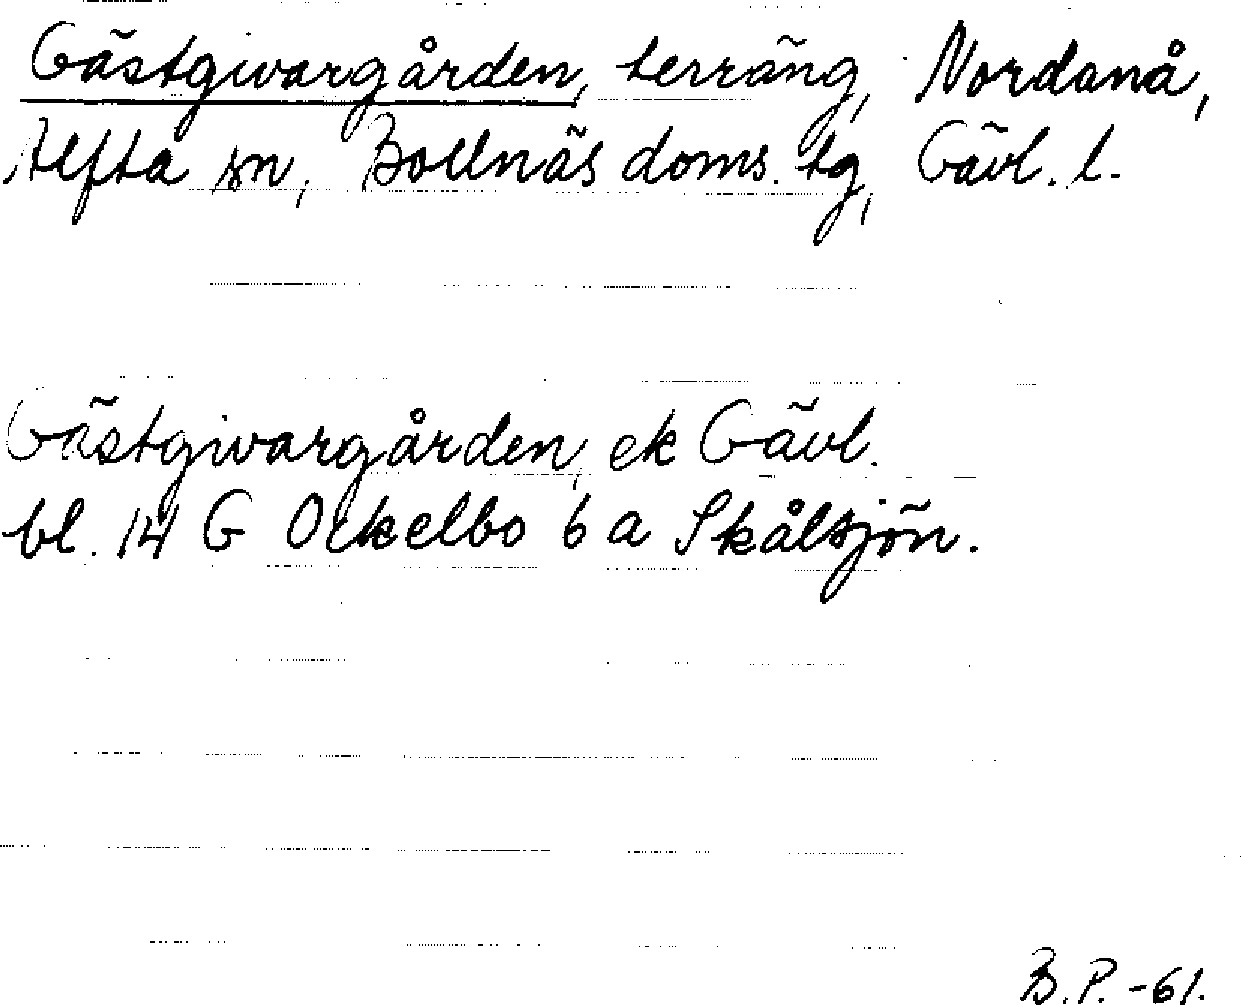 Gästgivargården, terräng, Nordanå,
Alfta sn, Bollnäs doms. tg, Gävl. l.
Gästgivargården, ek Gävl.
bl. 14 G Ockelbo 6 a Skålsjön.
B.P. -61.